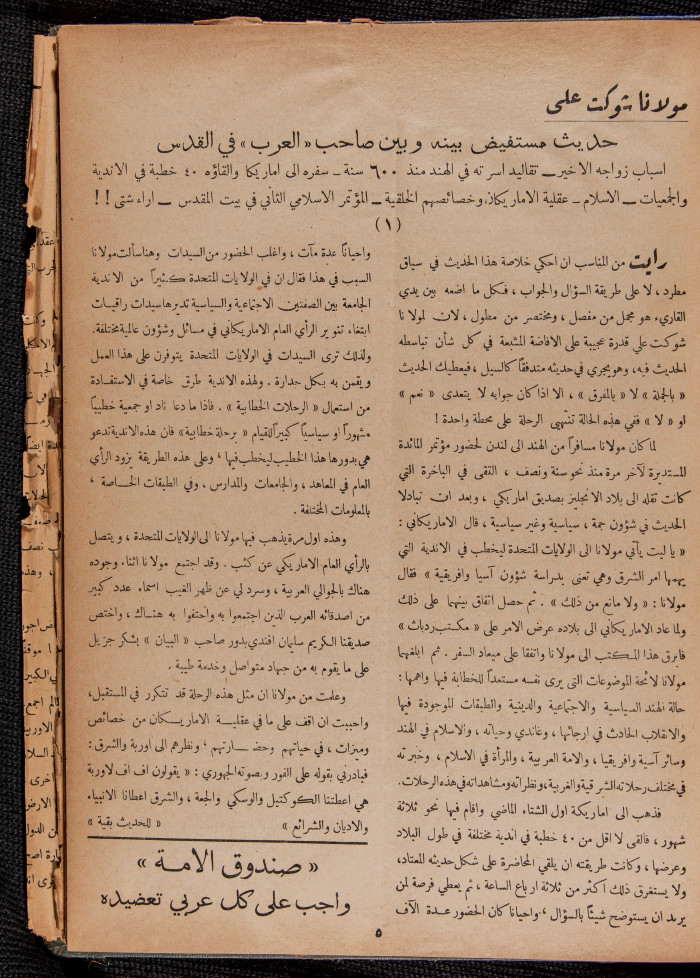 مولانا شوكت علي
حديث مستفيض بينه وبين صاحب «العرب» في القدس
اسباب زواجه الاخير ــ تقاليد اسرته في الهند منذ ٦٠٠ سنة ــ سفره الى اماريكا والقاؤه ٤٠ خطبة في الاندية
والجمعيات ــ الاسلام ــ عقلية الاماريكان وخصائصهم الخلقية ــ المؤتمر الاسلامي الثاني في بيت المقدس ــ اراء شتى ! !
(١)
رايت من المناسب ان احكي خلاصة هذا الحديث في سياق
مطرد ، لا على طريقة السؤال والجواب ، فكل ما اضعه بين يدي
القاريء هو مجمل من مفصل ، ومختصر من مطول ، لان لمولانا
شوكت علي قدرة عجيبة على الافاضة المشبعة في كل شأن تباسطه
الحديث فيه ، وهو يجري في حديثه متدفقاً كالسيل ، فيعطيك الحديث
« بالجملة » لا « بالمفرق » ، الا اذا كان جوابه لا يتعدى « نعم »
او « لا » ففي هذه الحالة تنتهى الرحلة على محطة واحدة !
لما كان مولانا مسافراً من الهند الى لندن لحضور مؤتمر المائدة
المستديرة لآخر مرة منذ نحو سنة ونصف ، التقى في الباخرة التي
كانت تقله الى بلاد الانجليز بصديق اماريكي ، وبعد ان تبادلا
الحديث في شؤون جمة ، سياسية وغير سياسية ، قال الاماريكاني :
« يا ليت يأتي مولانا الى الولايات المتحدة ليخطب في الاندية التي
يهمها امر الشرق وهي تعنى بدراسة شؤون آسيا وافريقية » فقال
مولانا : « ولا مانع من ذلك » . ثم حصل اتفاق بينهما على ذلك
ولما عاد الاماريكاني الى بلاده عرض الامر على « مكتب ردباث »
فابرق هذا المكتب الى مولانا واتفقا على ميعاد السفر . ثم ابلغهما
مولانا لائحة الموضوعات التى يرى نفسه مستعداً للخطابة فيها واهمها :
حالة الهند السياسية والاجتماعية والدينية والطبقات الموجودة فيها
والانقلاب الحادث في ارجائها ، وغاندي وحياته ، والاسلام في الهند
وسائر آسية وافريقيا ، والامة العربية ، والمرأة في الاسلام ، وخبرته
في مختلف رحلاته الشرقية والغربية ، ونظراته ومشاهداته في هذه الرحلات .
فذهب الى اماريكة اول الشتاء الماضي واقام فيها نحو ثلاثة
شهور ، فالقى لا اقل من ٤٠ خطبة في اندية مختلفة في طول البلاد
وعرضها ، وكانت طريقته ان يلقي المحاضرة على شكل حديثه المعتاد ،
ولا يستغرق ذلك أكثر من ثلاثة ارباع الساعة ، ثم يعطي فرصة لمن
يريد ان يستوضح شيئاً بالسؤال ، واحيانا كان الحضور عدة الآف
واحياناً عدة مآت ، واغلب الحضور من السيدات وهنا سألت مولانا
السبب في هذا فقال ان في الولايات المتحدة كثيراً من الاندية
الجامعة بين الصفتين الاجتماعية والسياسية تديرها سيدات راقيات
ابتغاء تنوير الرأي العام الاماريكاني في مسائل وشؤون عالمية مختلفة .
ولذلك ترى السيدات في الولايات المتحدة يتوفرن على هذا العمل
ويقمن به بكل جدارة . ولهذه الاندية طرق خاصة في الاستفادة
من استعمال « الرحلات الخطابية » . فاذا ما دعا ناد او جمعية خطيباً
مشهوراً او سياسياً كبيراً للقيام « برحلة خطابية » فان هذه الاندية تدعو
هي بدورها هذا الخطيب ليخطب فيها ، وعلى هذه الطريقة يزود الرأي
العام في المعاهد ، والجامعات والمدارس ، وفي الطبقات الخاصة ،
بالمعلومات المختلفة .
وهذه اول مرة يذهب فيها مولانا الى الولايات المتحدة ، ويتصل
بالرأي العام الاماريكي عن كثب . وقد اجتمع مولانا اثناء وجوده
هناك بالجوالي العربية ، وسرد لي عن ظهر الغيب اسماء عدد كبير
من اصدقائه العرب الذين اجتمعوا به واحتفوا به هناك ، واختص
صديقنا الكريم سليمان افندي بدور صاحب « البيان » بشكر جزيل
على ما يقوم به من جهاد متواصل وخدمة طيبة .
وعلمت من مولانا ان مثل هذه الرحلة قد تتكرر في المستقبل ،
واحببت ان اقف على ما في عقلية الاماريكان من خصائص
وميزات ، في حياتهم وحضارتهم ، ونظرهم الى اوربة والشرق :
فبادرني بقوله على الفور وبصوته الجهوري : « يقولون اف اف لاوربة
هي اعطتنا الكوكتيل والوسكي والجعة ، والشرق اعطانا الانبياء
والاديان والشرائع » « للحديث بقية »
« صندوق الامة »
واجب على كل عربي تعضيده
٥